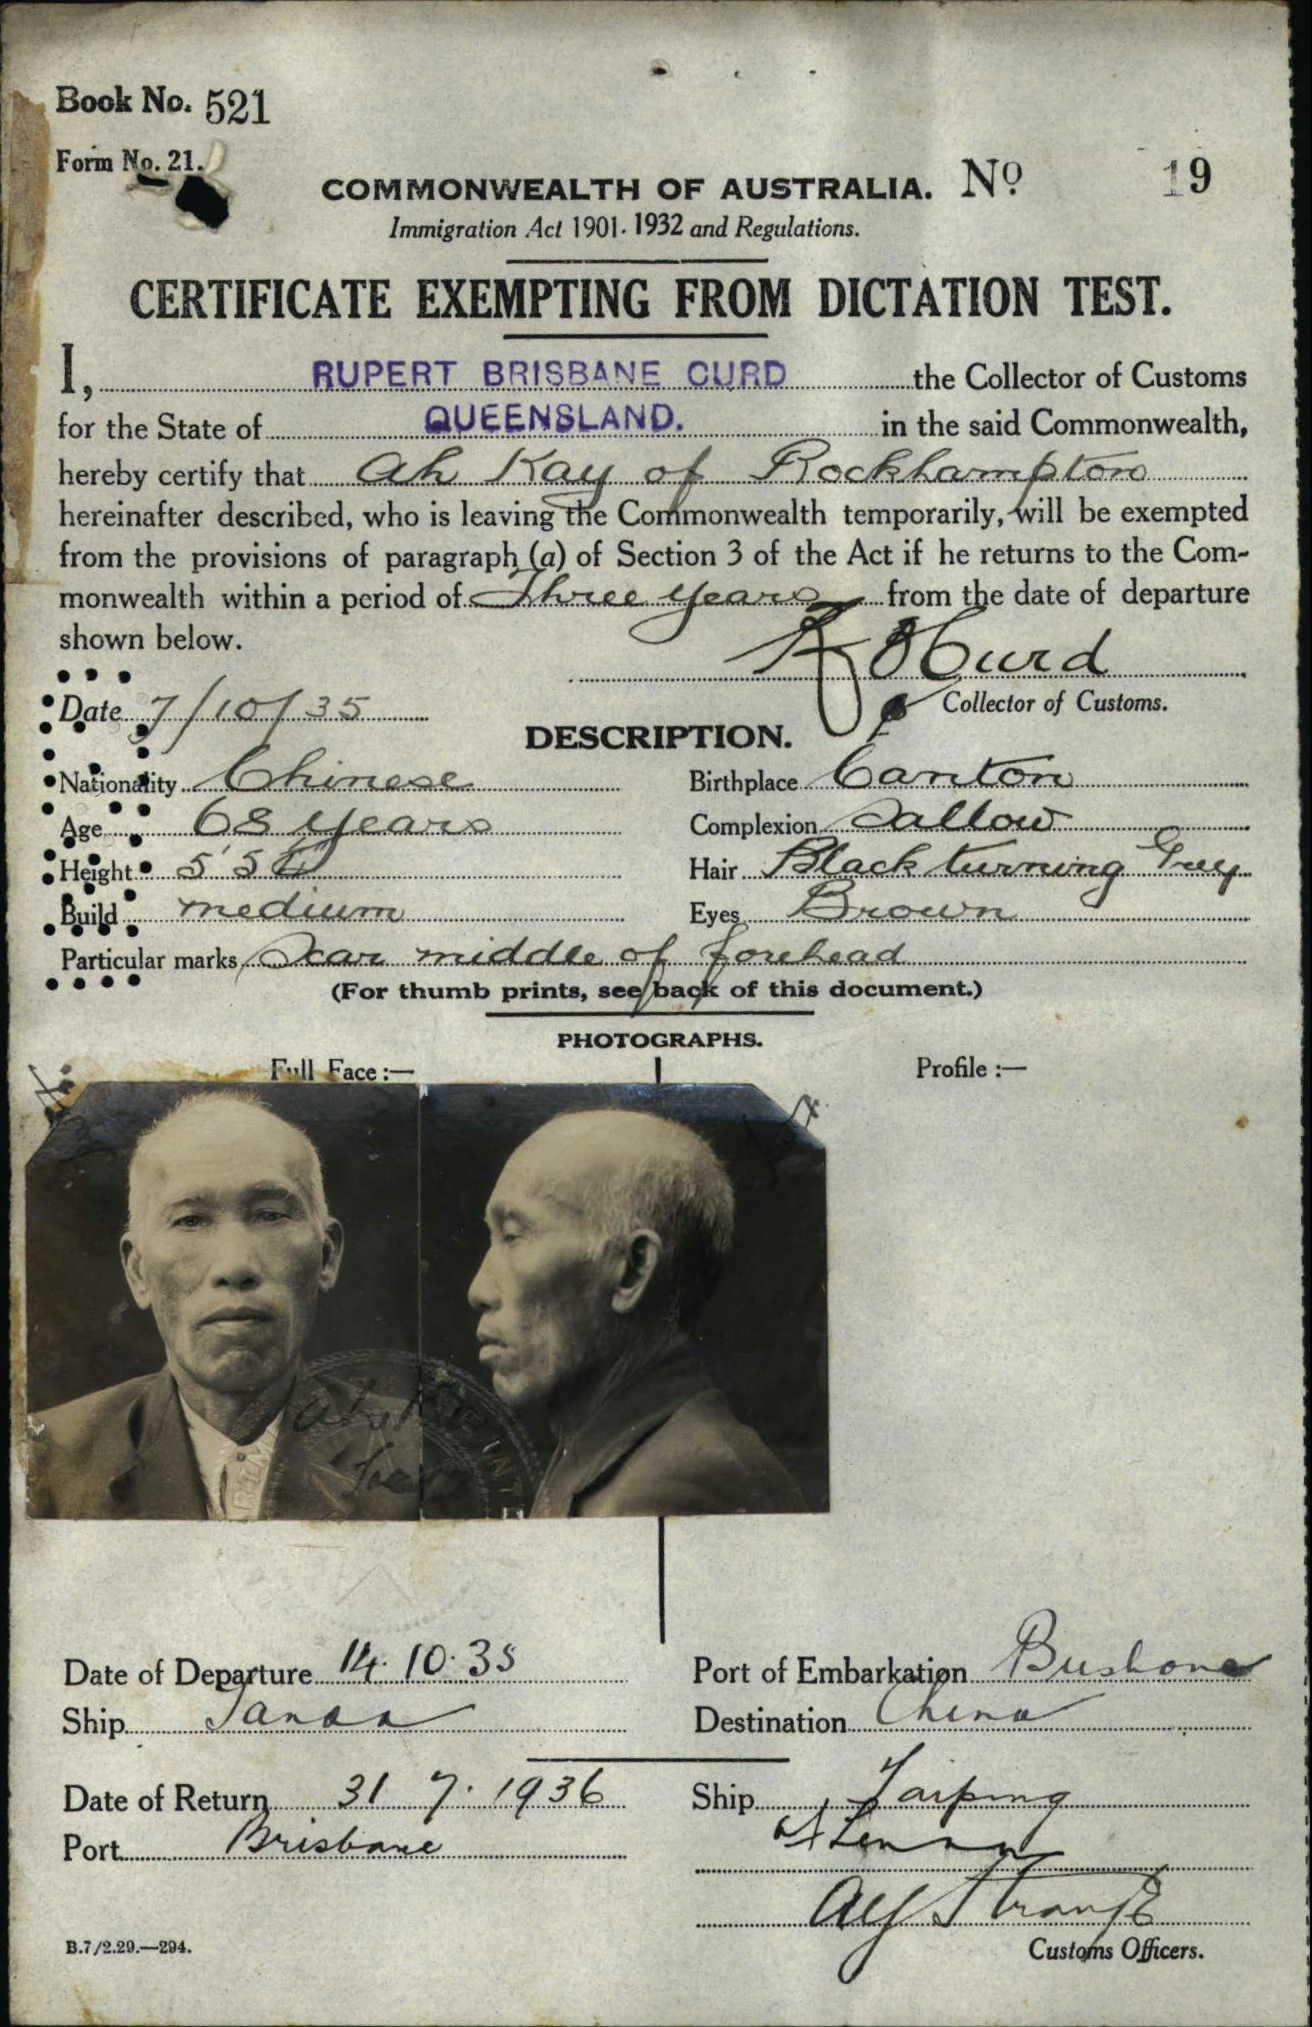 Book No. 521
Form No. 21.
COMMONWEALTH OF AUSTRALIA. No 19
Immigration Act 1901-1932 and Regulations.
CERTIFICATE EXEMPTING FROM DICTATION TEST.
I, RUPERT BRISBANE CURD the Collector of Customs
for the State of QUEENSLAND. in the said Commonwealth,
hereby certify that Ah Kay of Rockhampton
hereinafter described, who is leaving the Commonwealth temporarily, will be exempted
from the provisions of paragraph (a) of Section 3 of the Act if he returns to the Com-
monwealth within a period of Three Years from the date of departure
shown below.
R B Curd
Collector of Customs.
Date 7/10/35
DESCRIPTION.
Nationality Chinese Birthplace Canton
Age 68 years Complexion Sallow
Height 5' 5 Hair Black turning Grey
Build medium Eyes Brown
Particular marks Scar middle of forehead
(For thumb prints, see back of this document.)
PHOTOGRAPHS.
Full Face :— Profile :—
Date of Departure 14.10.35 Port of Embarkation Brisbane
Ship Tanda Destination China
Date of Return 31 7. 1936 Ship Taiping
Port Brisbane
Customs Officers.
B.7/2.29.—294.